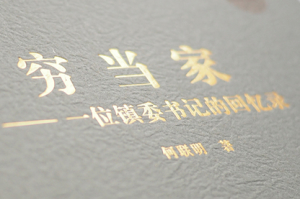 穷当家
——一位镇委书记的回忆录
何联明 著